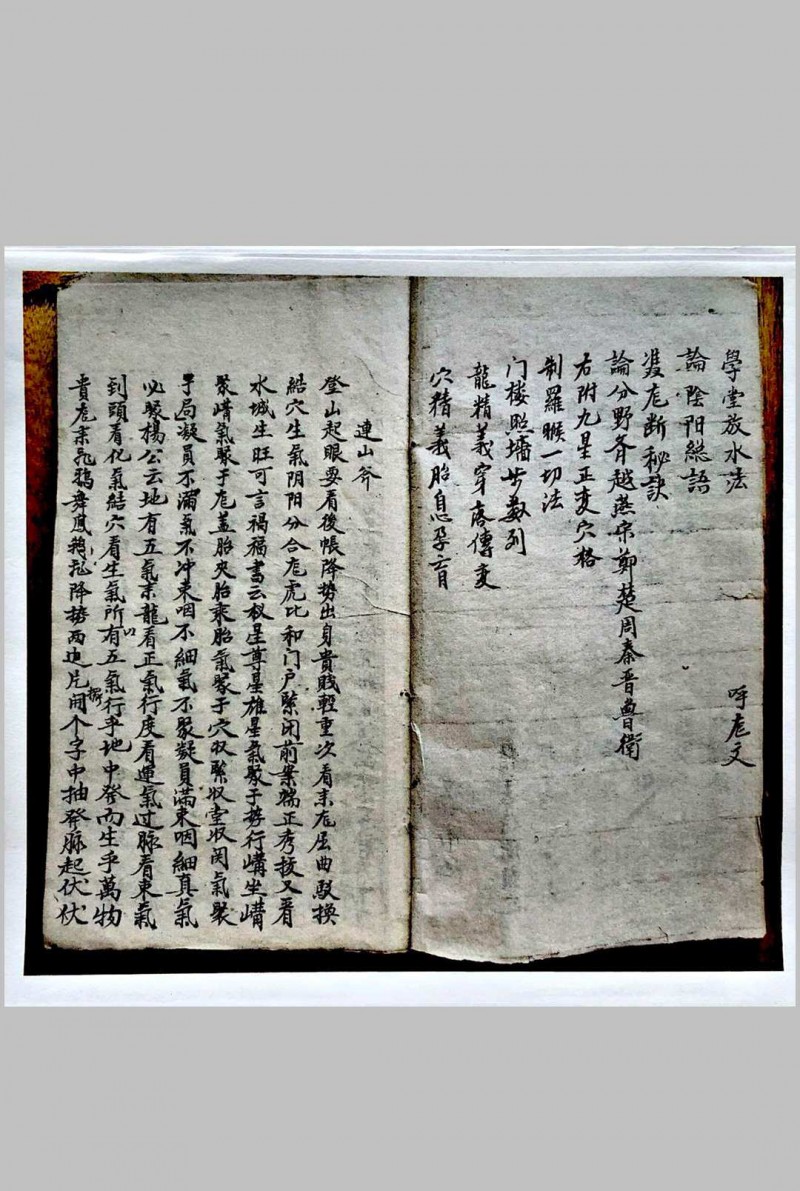 學堂放水法
呼龙文
論陰阳總語
退龙断秘訣
論分野齐越燕宋鄭楚周秦晋魯衛
右附九星正变穴格
制羅猴一切法
门楼照墙步数列
龍精義穿落傳变
穴精義胎息孕育
連山斧
登山起眼要看後帳降势出身貴賤輕重次看来龙屈曲换
結穴生氣阴阳分合龙虎比和门户緊闭前案端正又看
水城生旺可言禍福書云权星尊星雄星氣聚于行嶹坐嶹
聚嶹氣聚于龙盖胎夹胎乘胎氣聚于穴収緊収堂収関氣聚
于局凝員不滿氣不冲束咽不細氣不聚凝員滿束咽細真氣
必聚楊公云地有五氣来龍看正氣行度看運氣过脉看束氣
到頭看化氣結穴看生氣所以有五氣行乎地中發而生乎萬物
貴龙来飛鴉舞鳳降势两边片開个字中抽發脉起伏伏